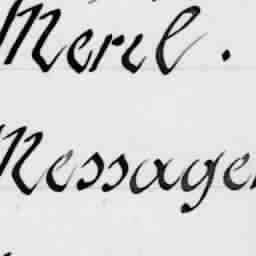 Meril.
Messager